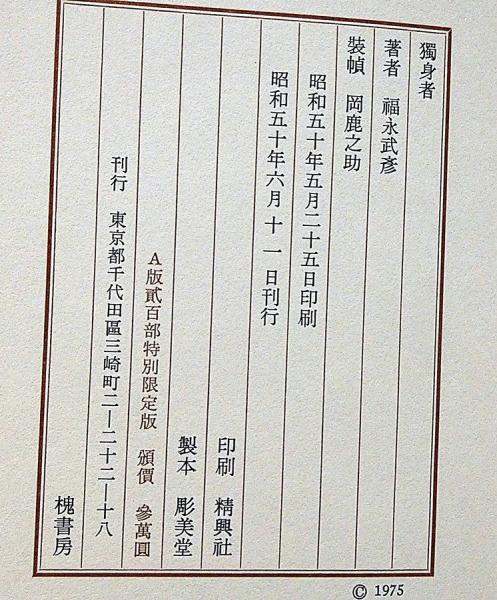 獨身者
著者　福永武彥
裝幀　岡鹿之助
昭和五十年五月二十五日印刷
昭和五十年六月十一日刊行
印刷　精興社
製本　彫美堂
A版貳百部特別限定版　頒價　參萬圓
刊行　東京都千代田區三崎町二ー二十二ー十八
槐書房
© 1975